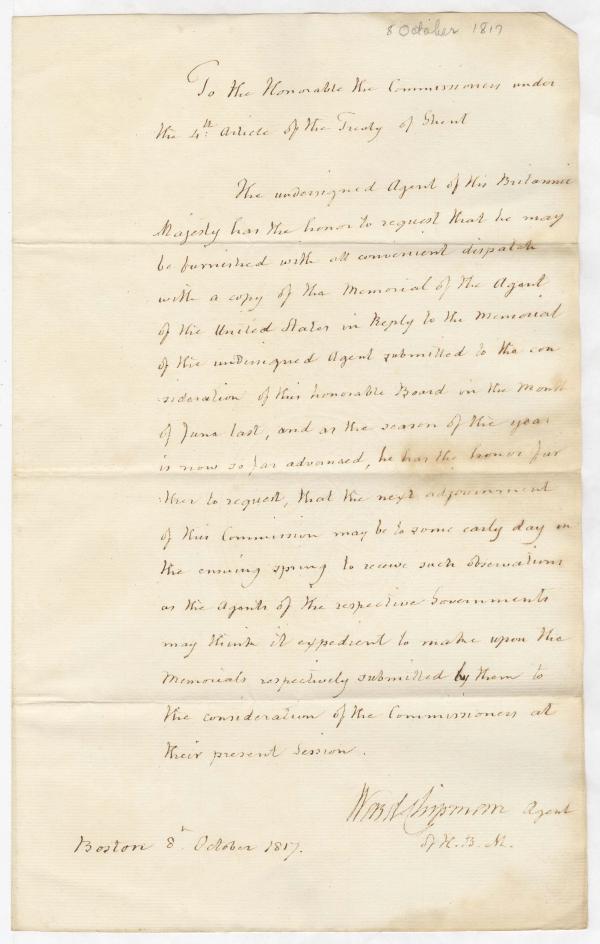 8 October 1817
To the Honorable the Commissioners under
the 4th. Article of the Treaty of Ghent
The undersigned Agent of His Britannic
Majesty has the honor to request that he may
be furnished with all convenient dispatch
with a copy of the Memorial of the Agent
of the United States in Reply to the Memorial
of the undersigned Agent submitted to the con
sideration of this honorable Board in the Month
of June last, and as the season of the year
is now so far advanced, he has the honor fur
ther to request, that the next adjournment
of this Commission may be to some early day in
the ensuing spring to receive such observations
as the Agents of the respective Governments
may think it expedient to make upon the
Memorials respectively submitted by them to
the consideration of the Commissioners at
their present Session.
Ward Chipman Agent
of H. B. M.
Boston 8th. October 1817.